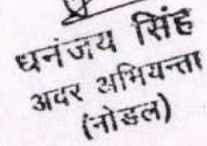 धनंजय सिंह
अवर अभियन्ता
(नोडल)